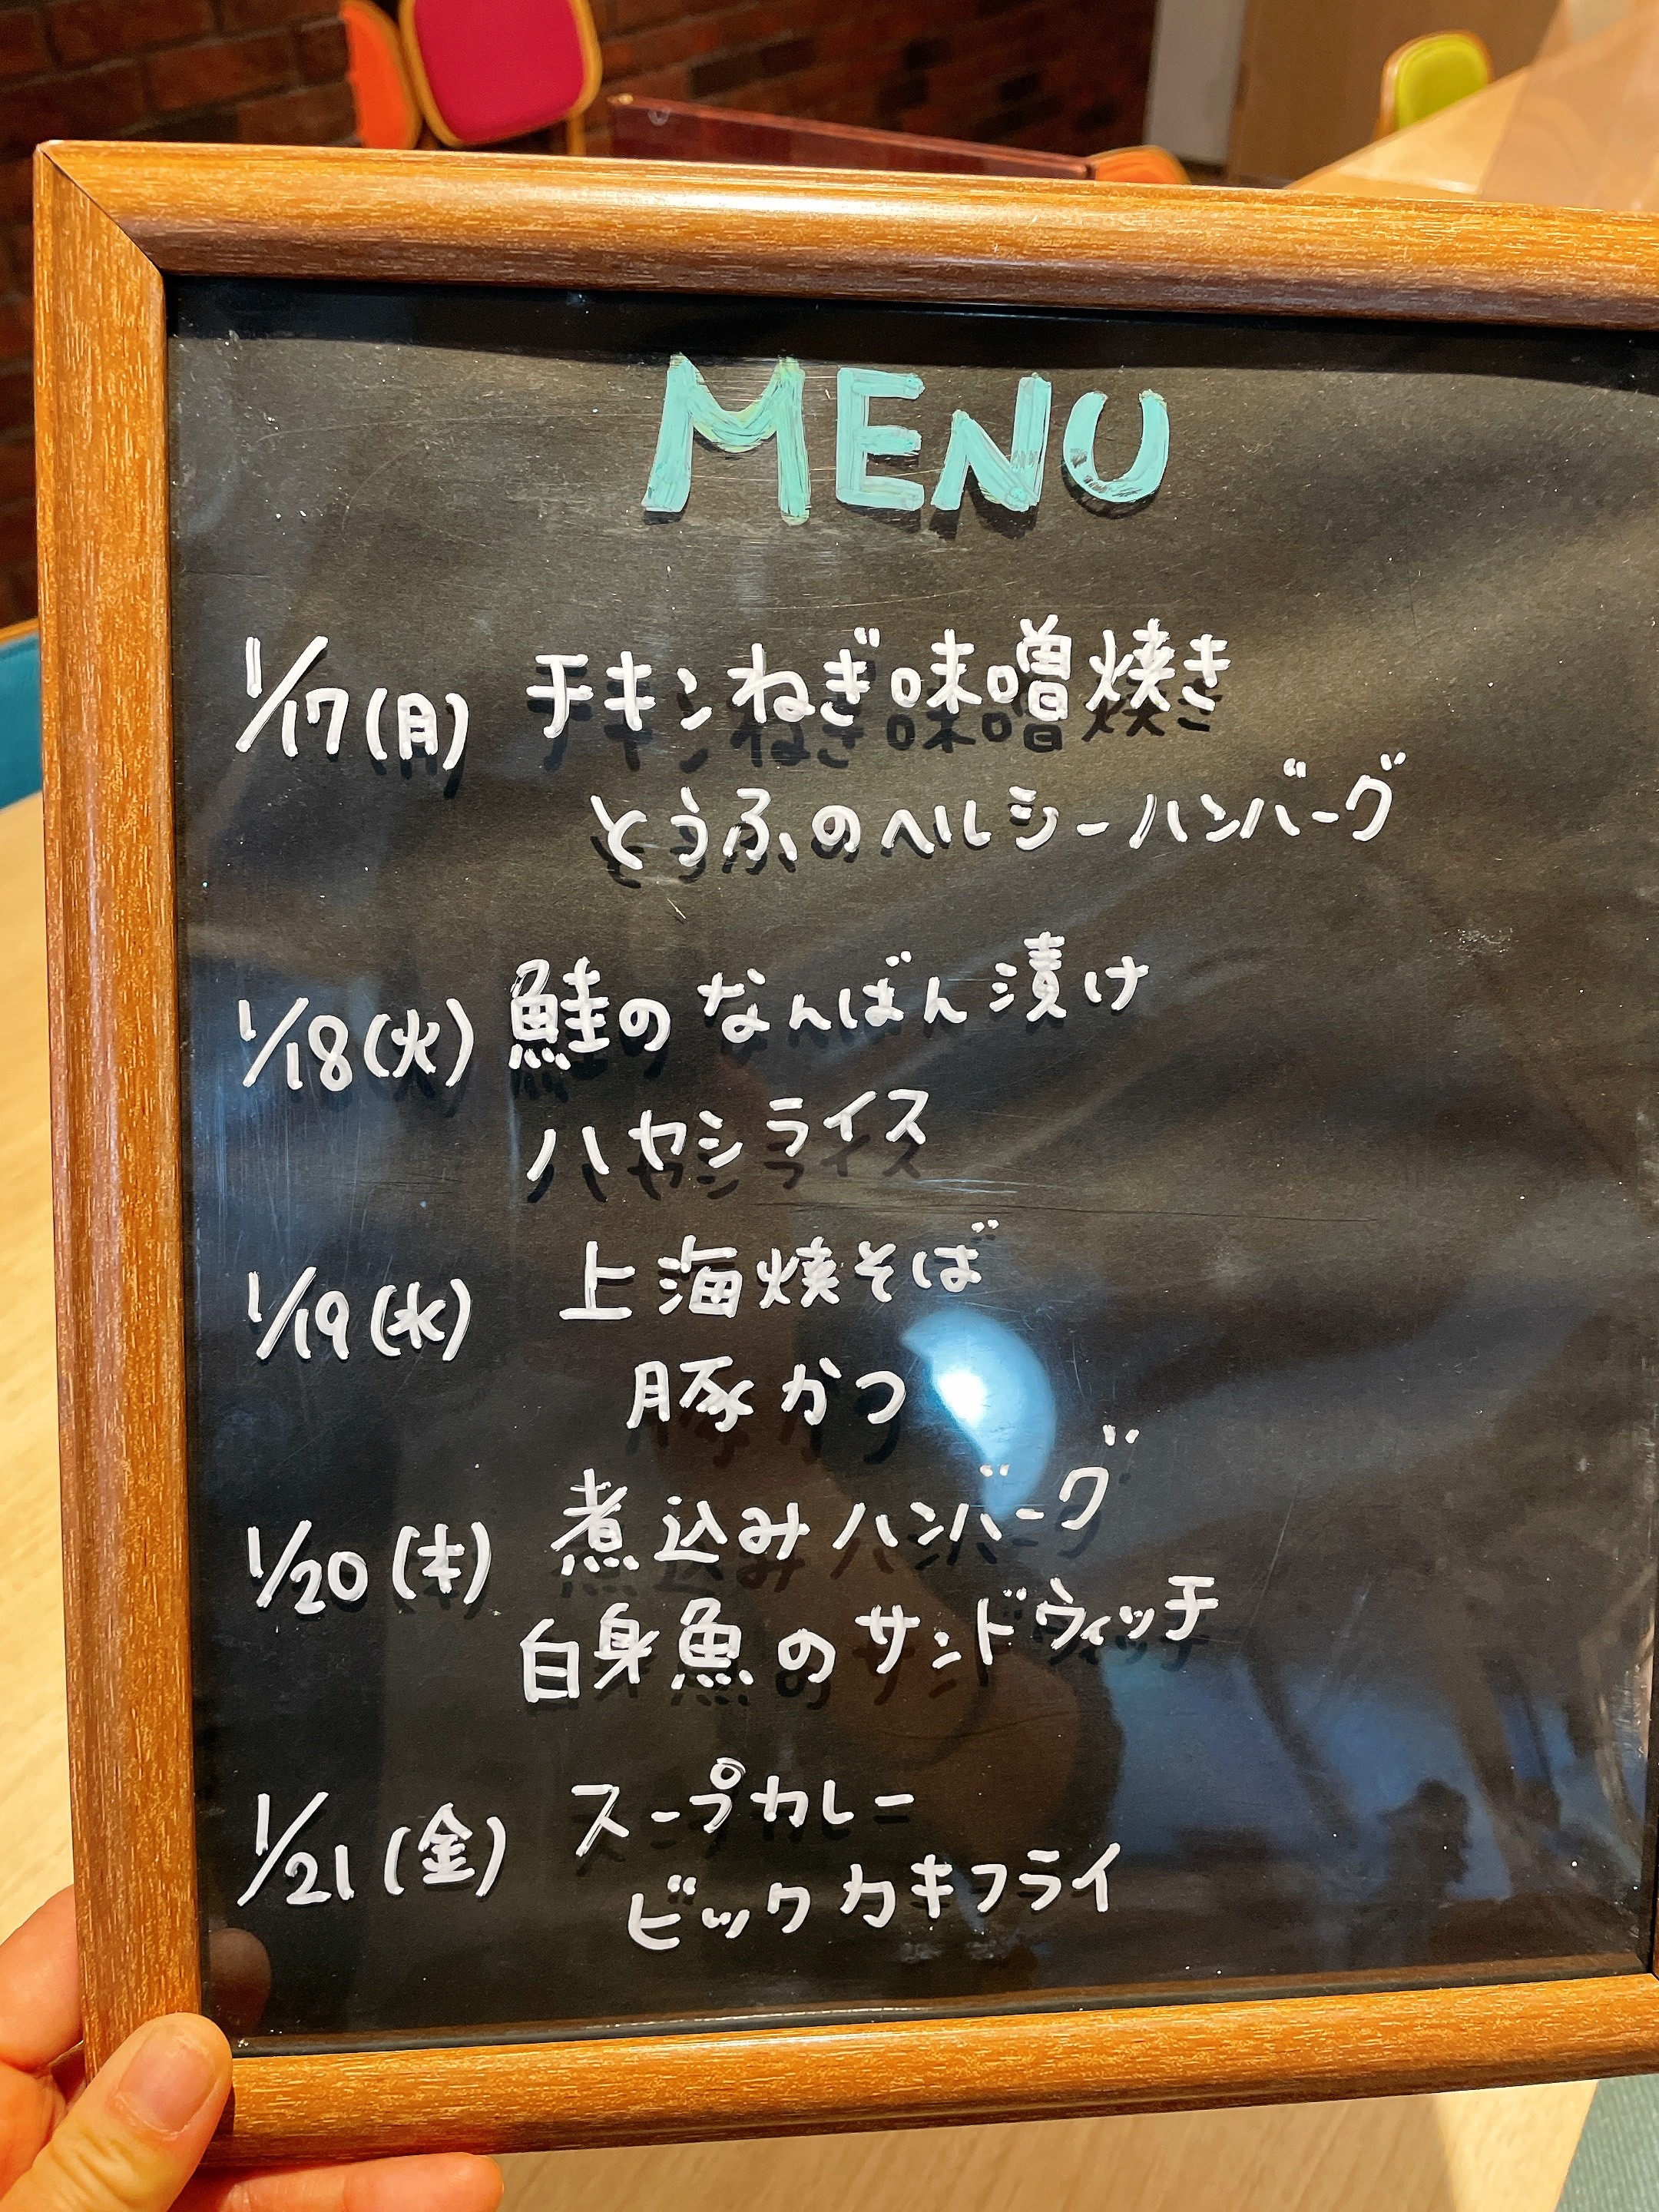 MENU
1/17(月) チキンねぎ味噌焼き
とうふのヘルシーハンバーグ
1/18(火) 鮭のなんばん漬け
ハヤシライス
1/19(水) 上海焼そば
豚かつ
1/20(木) 煮込みハンバーグ
白身魚のサンドウィッチ
1/21(金) スープカレー
ビックカキフライ